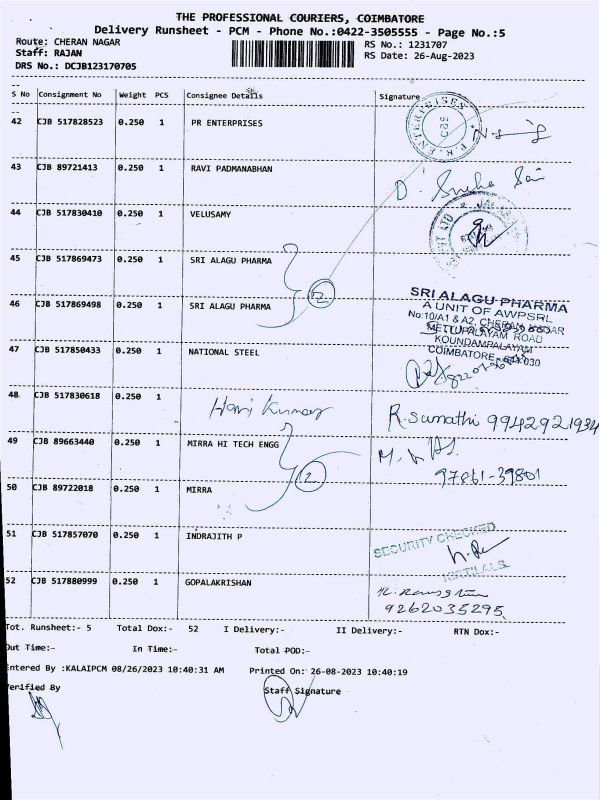 THE PROFESSIONAL COURIERS, COIMBATORE
Delivery Runsheet - PCM - Phone No.:0422-3505555 - Page No.:5
Route: CHERAN NAGAR RS No.: 1231707
Staff: RAJAN RS Date: 26-Aug-2023
DRS No.: DCJB123170705
S No Consignment No Weight PCS Consignee Details Signature
42 CJB 517828523 0.250 1 PR ENTERPRISES
43 CJB 89721413 0.250 1 RAVI PADMANABHAN
D. Sneha Sai
44 CJB 517830410 0.250 1 VELUSAMY
45 CJB 517869473 0.250 1 SRI ALAGU PHARMA
2
46 CJB 517869498 0.250 1 SRI ALAGU PHARMA
SRI ALAGU PHARMA
A UNIT OF AWPSRL
No:10/A1 & A2, CHERAN NAGAR
METTUPALAYAM ROAD
KOUNDAMPALAYAM
COIMBATORE - 641 030
47 CJB 517850433 0.250 1 NATIONAL STEEL
48 CJB 517830618 0.250 1
Hari Kumar R. Sumathi 9942921934
49 CJB 89663440 0.250 1 MIRRA HI TECH ENGG
97861-39801
2
50 CJB 89722018 0.250 1 MIRRA
51 CJB 517857070 0.250 1 INDRAJITH P
SECURITY CHECKED
KIRTILALS
52 CJB 517880999 0.250 1 GOPALAKRISHAN
9262035295
Tot. Runsheet:- 5 Total Dox:- 52 I Delivery:- II Delivery:- RTN Dox:-
Out Time:- In Time:- Total POD:-
Entered By :KALAIPCM 08/26/2023 10:40:31 AM Printed On: 26-08-2023 10:40:19
Verified By Staff Signature